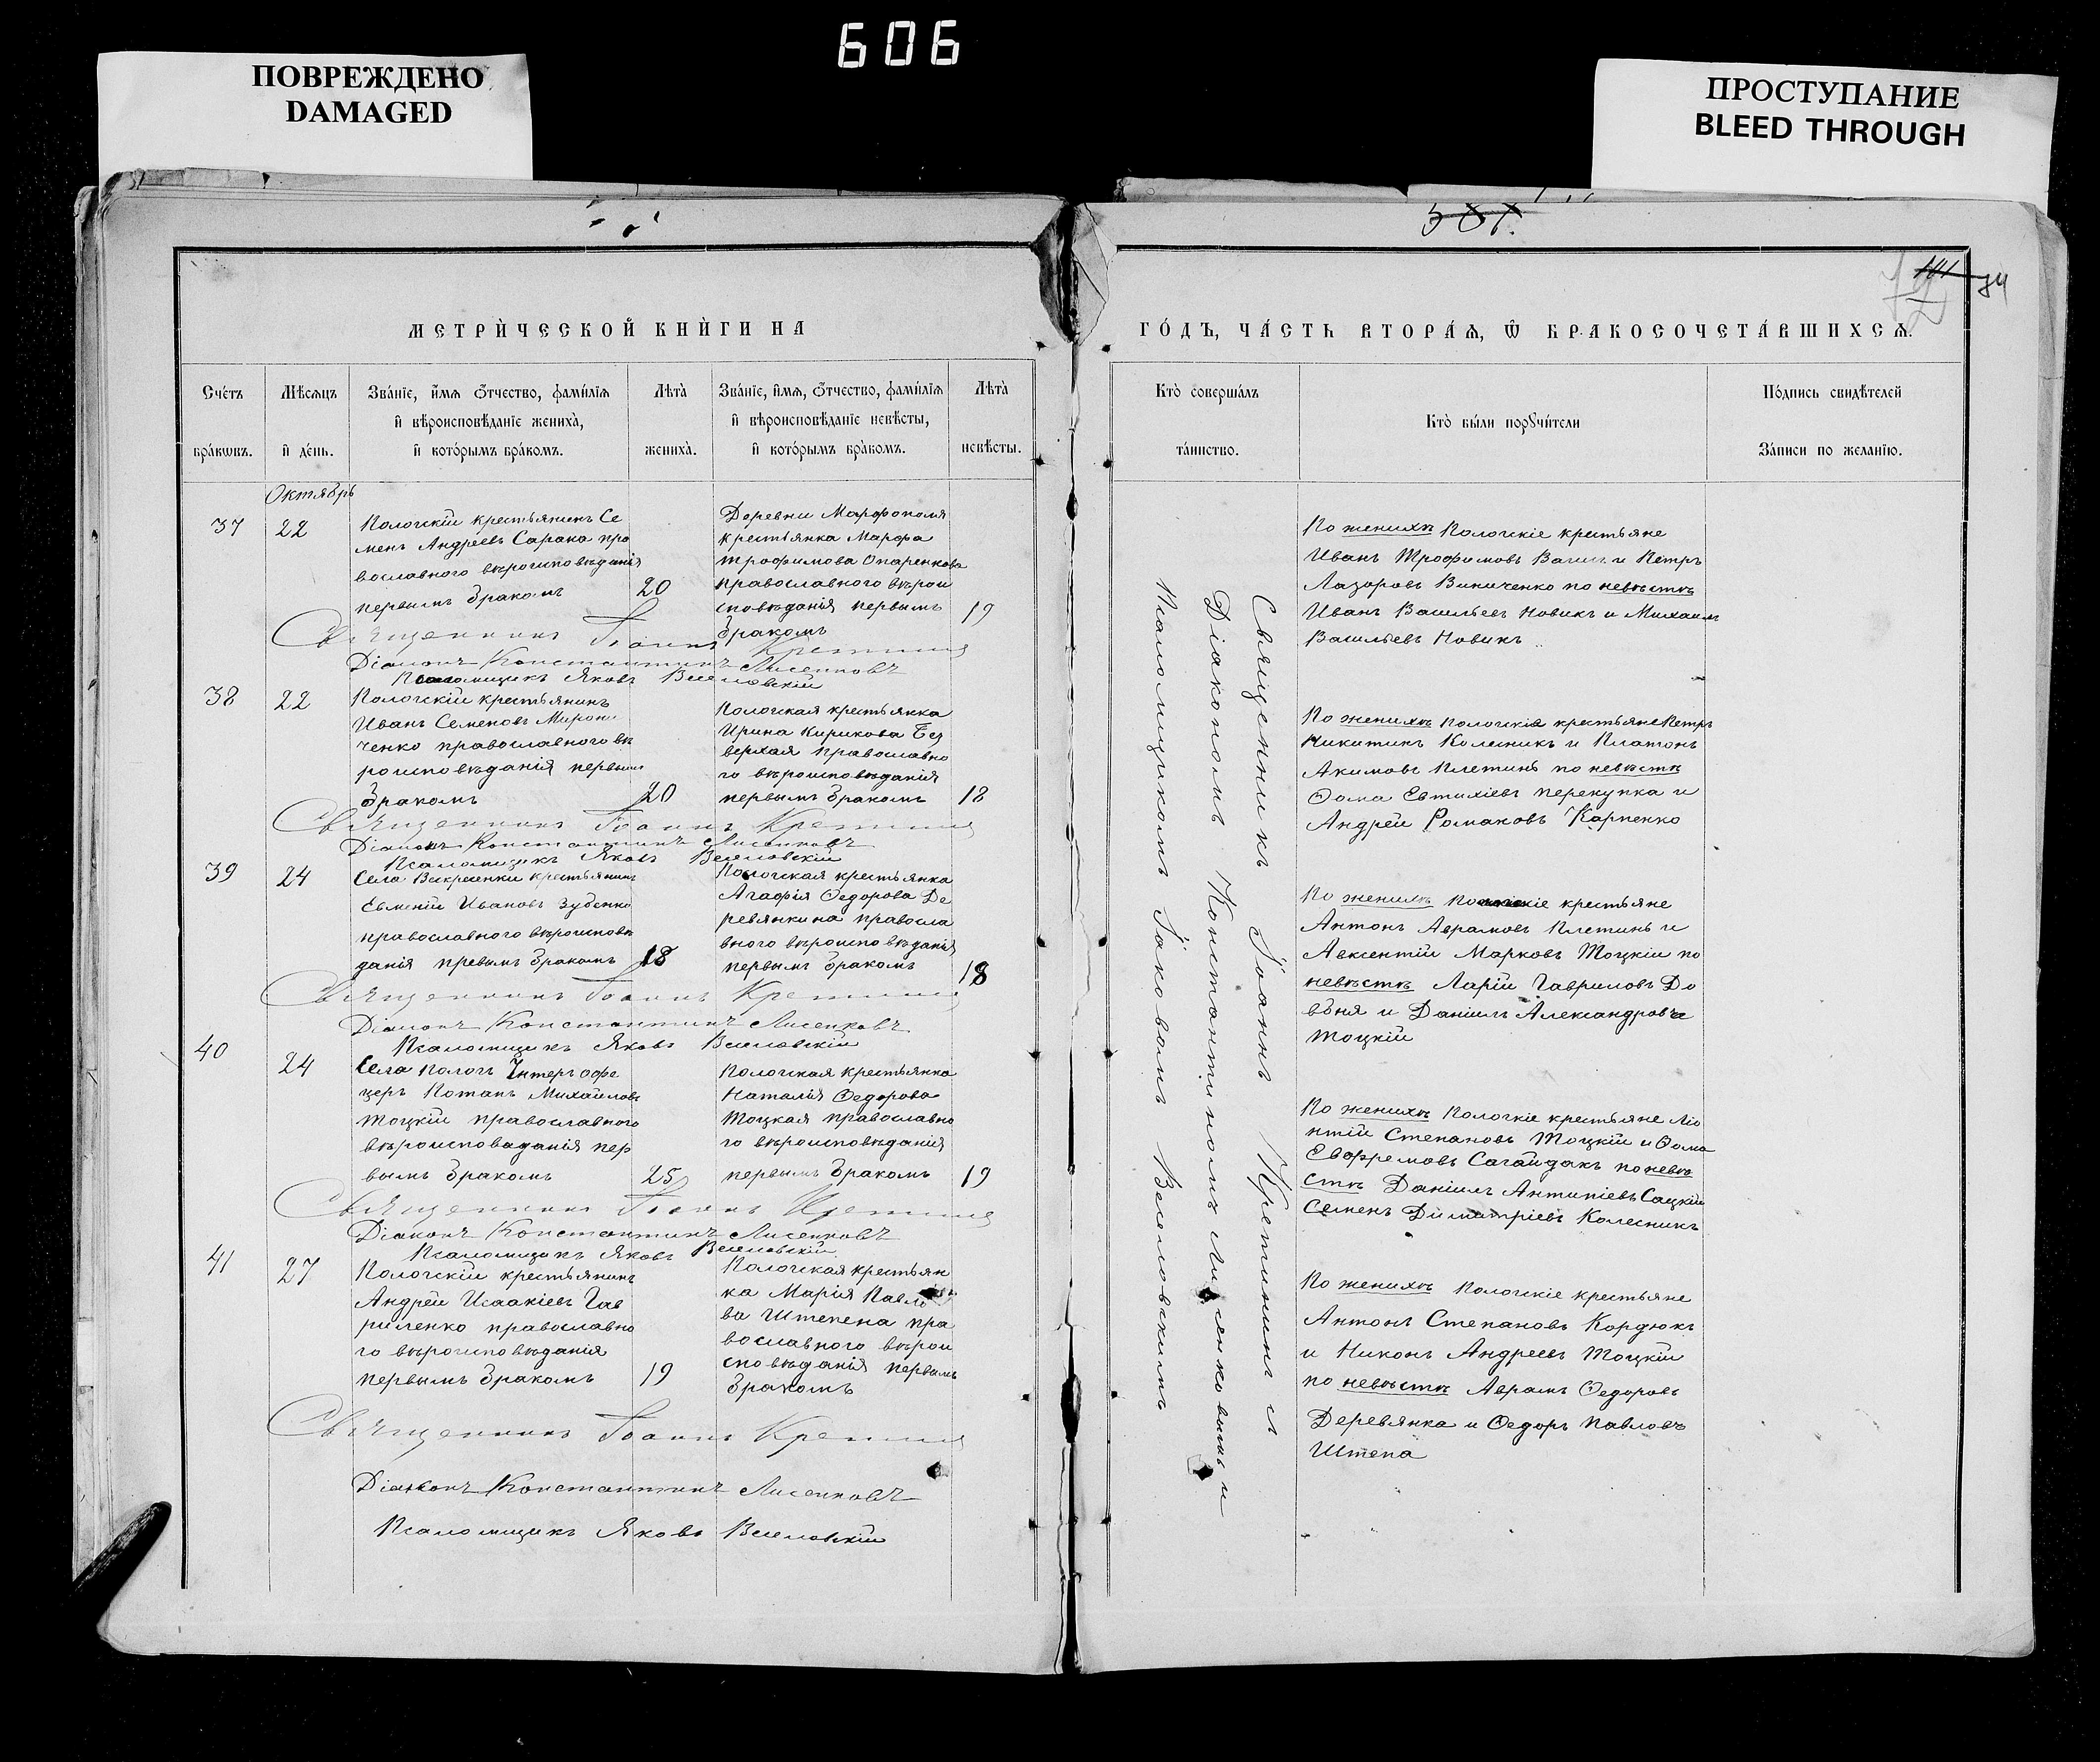 606
ПОВРЕЖДЕНО
DAMAGED
ПРОСТУПАНИЕ
BLEED THROUGH
МЕТРИ́ЧЕСКОЙ КНИ́ГИ НА
ГО́ДЪ, ЧА́СТЬ ВТОРА́Я, Ѡ БРАКОСОЧЕТА́ВШИХСЯ.
Сче́тъ
бра́кѡвъ.
Мѣ́сяцъ
и де́нь.
Зва́нїе, и́мя ѻ́тчество, фами́лїя
и вѣроисповѣ́данїе жениха̀,
и кото́рымъ бра́комъ.
Лѣта̀
жениха̀.
Зва́нїе, и́мя, ѻ́тчество, фами́лїя
и вѣроисповѣ́данїе невѣ́сты,
и кото́рымъ бра́комъ.
Лѣта̀
невѣ́сты.
Кто̀ соверша́лъ
та́инство.
Кто̀ бы́ли порꙋчи́тели
По́дпись свидѣ́телей
За́писи по жела́нїю.
Октябрь
37
22
Пологскій крестьянинъ Се
менъ Андреевъ Сарана пра
вославного вѣроисповѣданія
первымъ бракомъ
20
Деревни Марфополя
крестьянка Марфа
Трофимова Опаренкова
православного вѣрои
сповѣданія первымъ
бракомъ
19
По женихѣ Пологскіе крестьяне
Иванъ Трофимовъ и Петръ
Лазаровъ Виниченко по невѣстѣ
Иванъ Васильевъ Новикъ и Михаилъ
Васильевъ Новикъ
Священникъ Іоаннъ Кретинин
Діаконъ Константинъ Лисенковъ
Псаломщикъ Яковъ Веселовскій
38
22
Пологскій крестьянинъ
Иванъ Семеновъ Мирони
ченко православного вѣ
роисповѣданія первымъ
бракомъ
20
Пологская крестьянка
Ирина Кирикова Без
верхая православно
го вѣроисповѣданія
первымъ бракомъ
18
По женихѣ Пологскіе крестьяне Петръ
Никитинъ Колесникъ и Платонъ
Акимовъ Плетинь по невѣстѣ
Ѳома Евтихіевъ Перекупка и
Андрей Романовъ Карпенко
Священникъ Іоаннъ Кретинин
Діаконъ Константинъ Лисенковъ
Псаломщикъ Яковъ Веселовскій
39
24
Села Воскресенки крестьянинъ
Евменій Ивановъ Зубенко
православного вѣроисповѣ
данія превымъ бракомъ
18
Пологская крестьянка
Агафія Ѳедорова Де
ревянкина правосла
вного вѣроисповѣданія
первымъ бракомъ
18
По женихѣ Пологскіе крестьяне
Антонъ Аврамовъ Плетинь и
Авксентій Марковъ Тоцкій по
невѣстѣ Ларій Гавриловъ До
вбня и Даніилъ Александровъ
Тоцкій
Священникъ Іоаннъ Кретинин
Діаконъ Константинъ Лисенковъ
Псаломщикъ Яковъ Веселовскій
40
24
Села Пологъ Унтеръ офи
церъ Потапъ Михайловъ
Тоцкій православного
вѣроисповаданія пер
вымъ бракомъ
25
Пологская крестьянка
Наталія Ѳедорова
Тоцкая православно
го вѣроисповѣданія
первымъ бракомъ
19
По женихѣ Пологскіе крестьяне Лео
нтій Степановъ Тоцкій и Ѳома
Евфремовъ Сагайдакъ по невѣ
стѣ Даніилъ Антипіевъ Сацкій
Семенъ Димитріевъ Колесникъ
Священникъ Іоаннъ Кретинин
Діаконъ Константинъ Лисенковъ
Псаломщикъ Яковъ Веселовскій
41
27
Пологскій крестьянинъ
Андрей Исаакіевъ Гав
риленко православно
го вѣроисповѣданія
первымъ бракомъ
19
Пологская крестьян
ка Марія Павло
ва Штепена пра
вославного вѣрои
сповѣданія первымъ
бракомъ
По женихѣ Пологскіе крестьяне
Антонъ Степановъ Кордюкъ
и Никонъ Андреевъ Тоцкій
по невѣстѣ Аврамъ Ѳедоровъ
Деревянка и Ѳедоръ Павловъ
Штепа
Священникъ Іоаннъ Кретинин
Діаконъ Константинъ Лисенковъ
Псаломщикъ Яковъ Веселовскій
Священникъ Іоаннъ Кретининъ с
Діакономъ Константиномъ Лисянковымъ и
Псаломщикомъ Іаковомъ Веселовскимъ